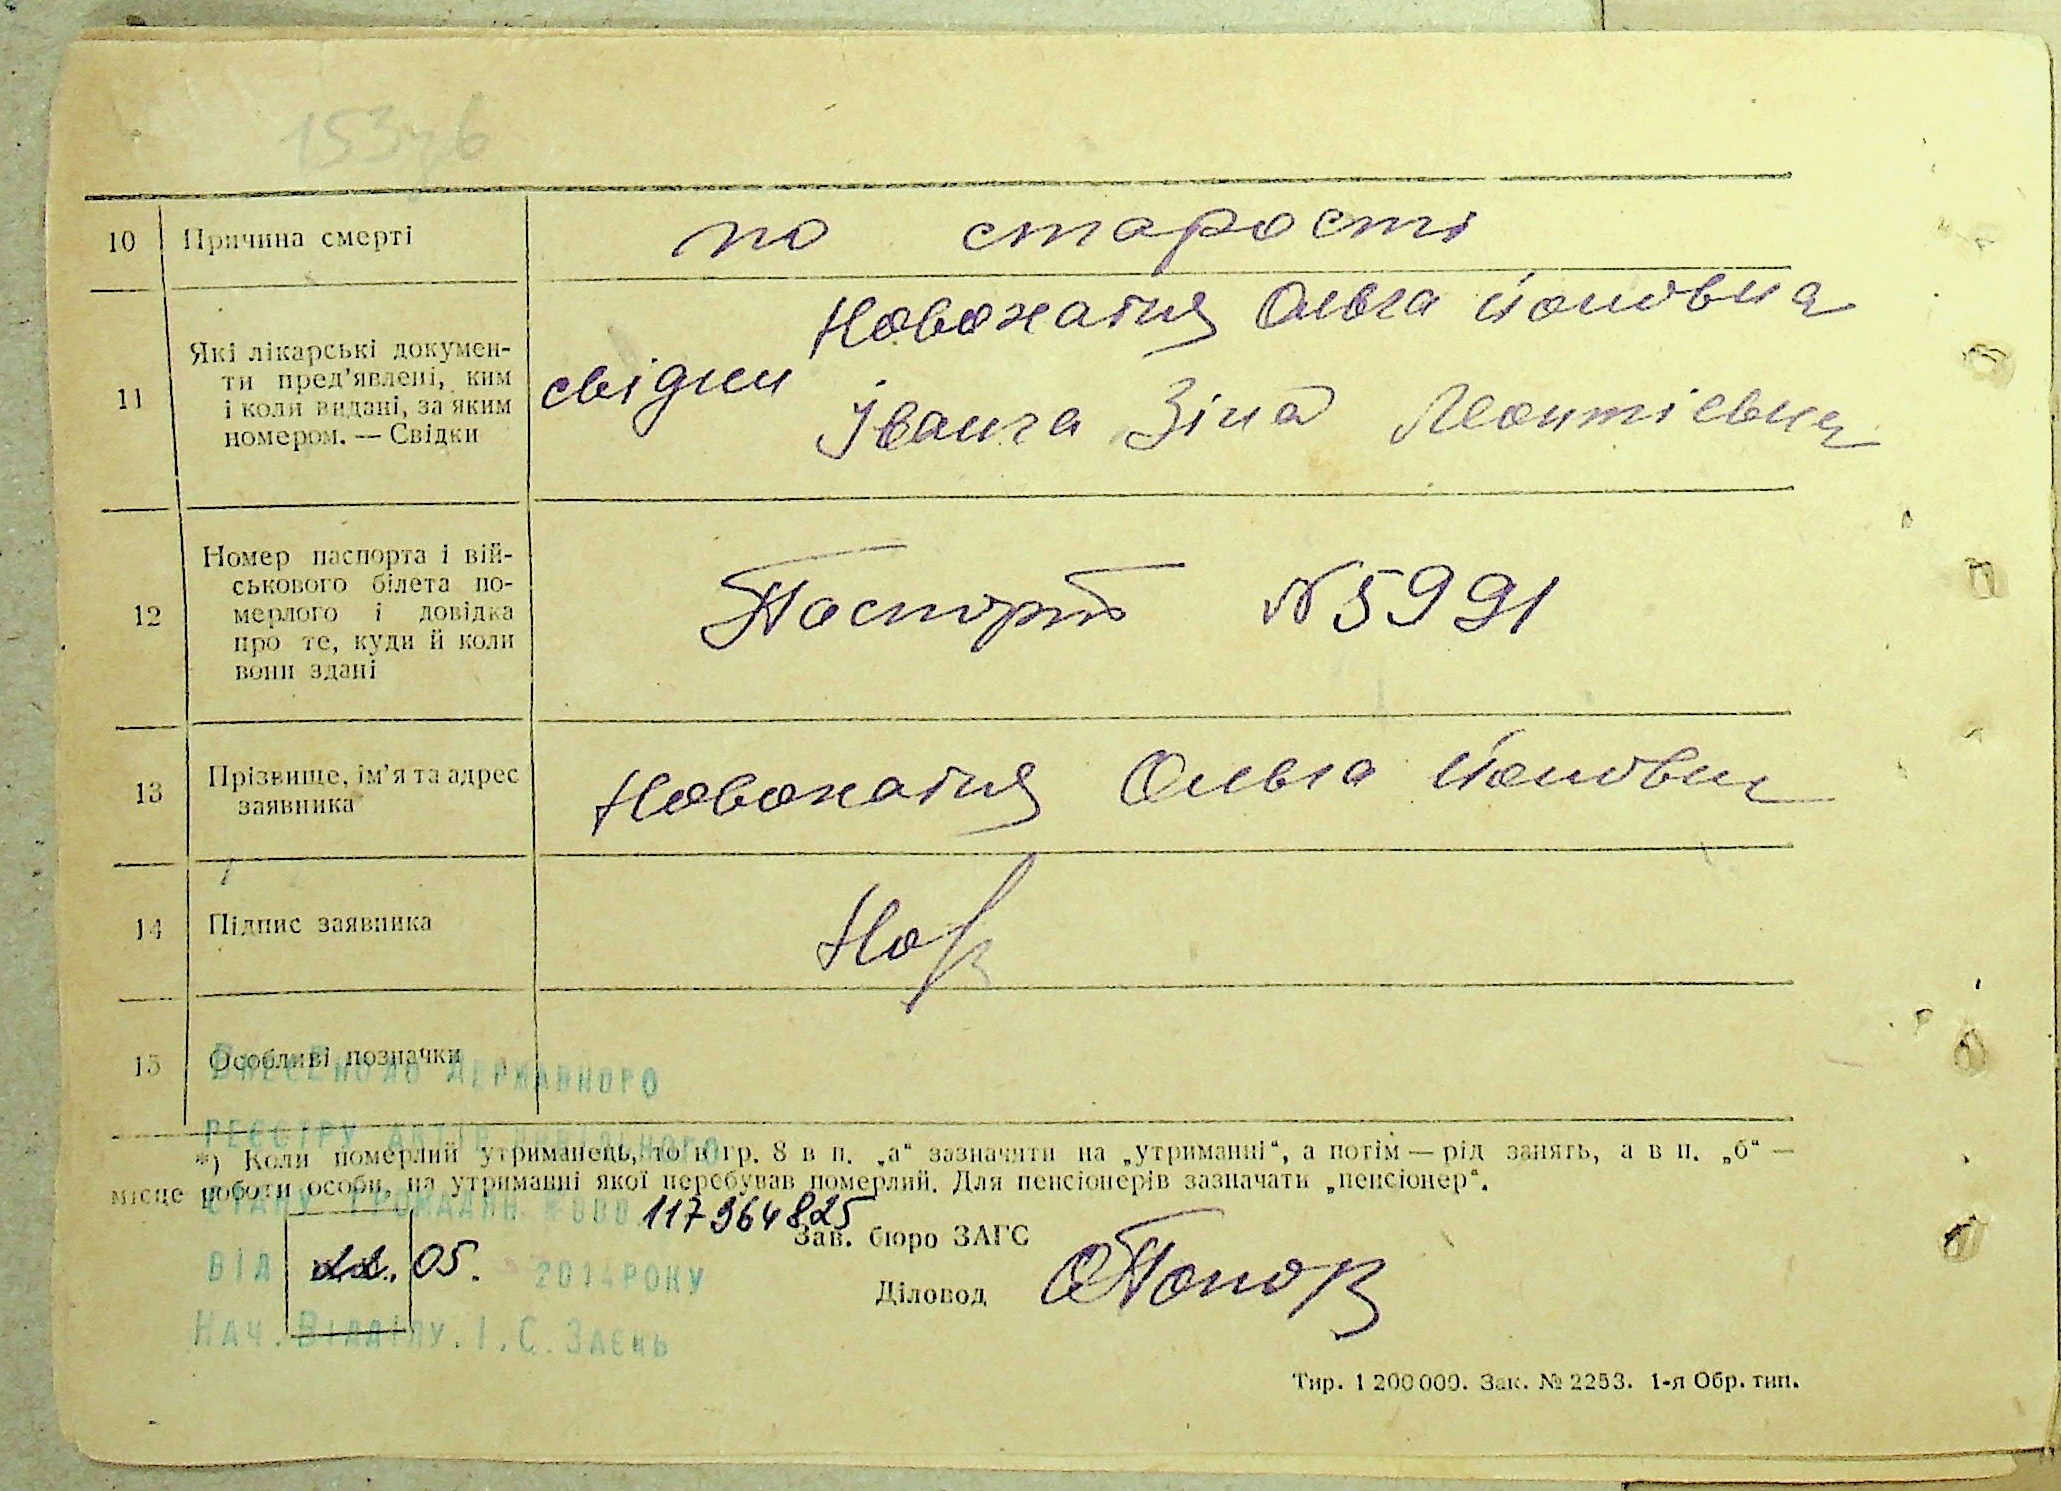 153
10 Причина смерті
по старості
11 Які лікарські докумен-
ти пред'явлені, ким
і коли видані, за яким
номером. — Свідки
Новохатня Ольга
свідки
Іванга Зіна Леонтіевна
12 Номер паспорта і вій-
ськового білета по-
мерлого і довідка
про те, куди й коли
вони здані
Паспорт №5991
13 Прізвище, ім'я та адрес
заявника
Новохатня Ольга
14 Підпис заявника
Нов
15 Особливі позначки
Внесено до Державного
реєстру актів цивільного
*) Коли померлий утриманець, то в гр. 8 в п. „а" зазначити на „утриманні", а потім — рід занять, а в п. „б" —
місце роботи особи, на утриманні якої перебував померлий. Для пенсіонерів зазначати „пенсіонер".
стану громадян №000117964825
Зав. бюро ЗАГС
від 22.05. 2014 року
Діловод
Нач. Відділу. І. С. Заєць
Тир. 1 200 000. Зак. № 2253. 1-я Обр. тип.